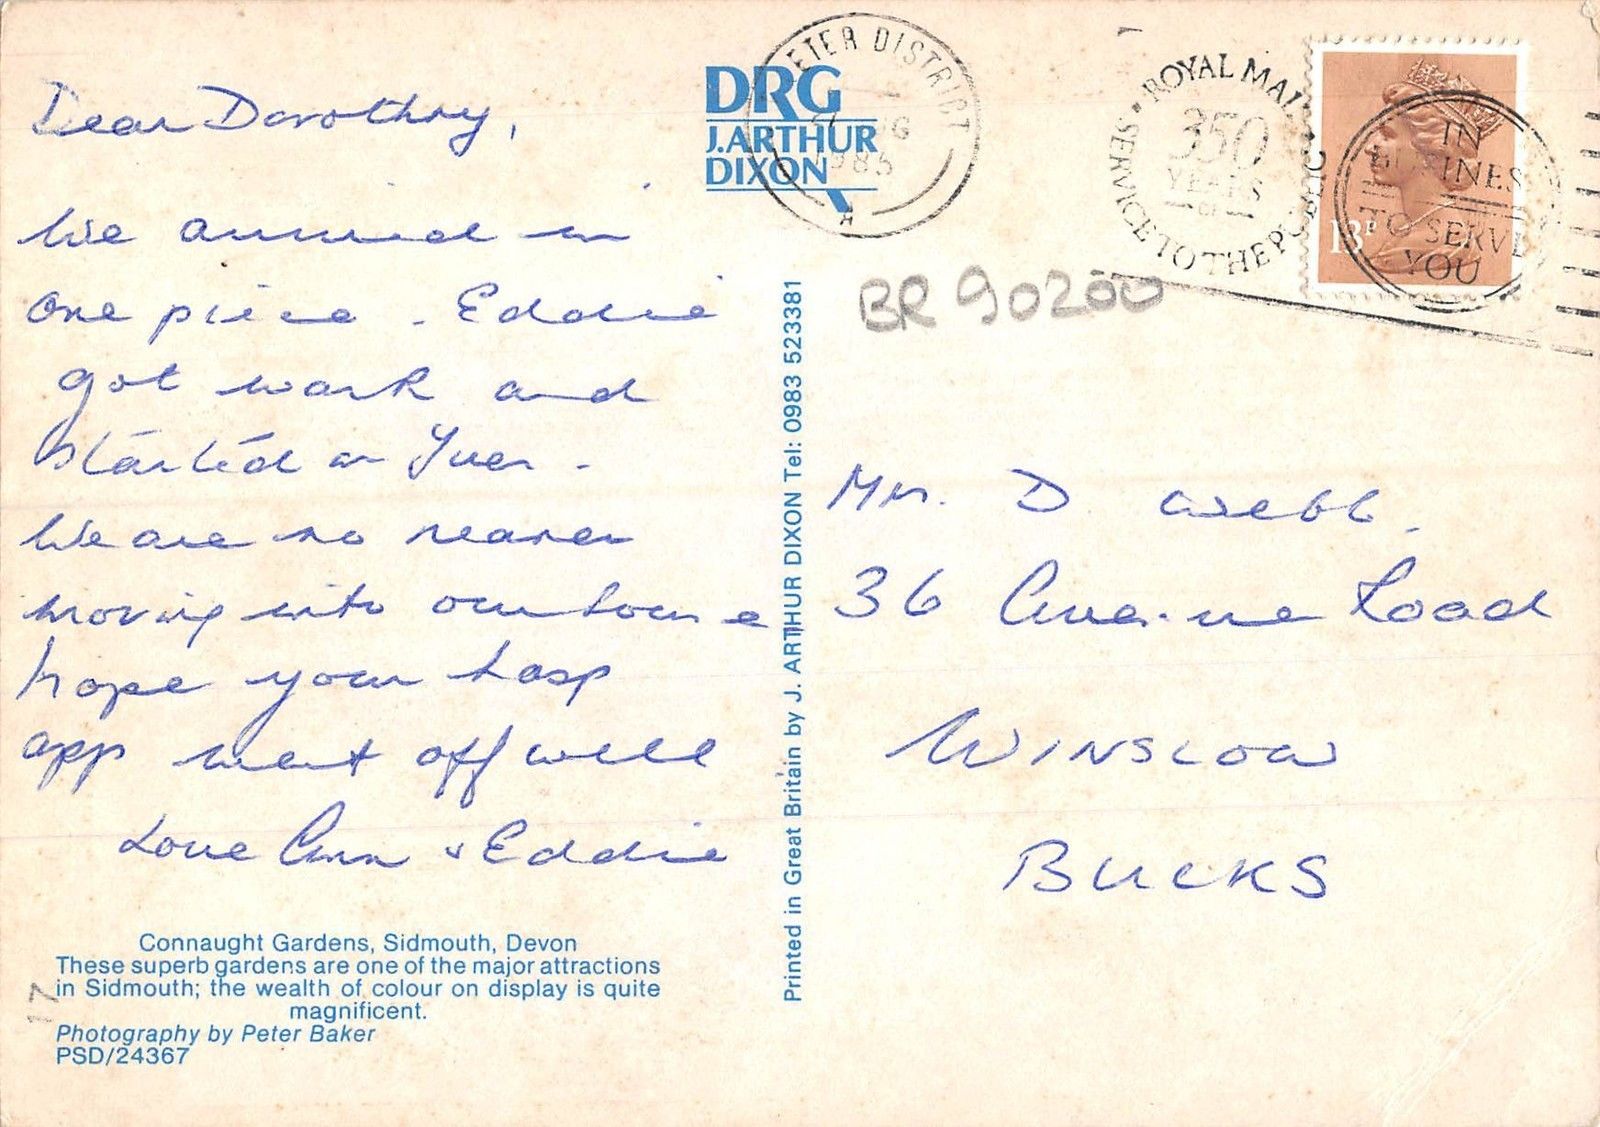 Dear Dorothy,
We arrived in
one piece. Eddie
got work and
started on Tues.
We are no nearer
moving into our home
hope your hosp
app went off well
Love Ann & Eddie
Connaught Gardens, Sidmouth, Devon
These superb gardens are one of the major attractions
in Sidmouth; the wealth of colour on display is quite
magnificent.
Photography by Peter Baker
PSD/24367
17
DRG
J.ARTHUR
DIXON
Printed in Great Britain by J. ARTHUR DIXON Tel: 0983 523381
ETER DISTRICT
1985
ROYAL MAIL
350
YEARS
OF
SERVICE TO THE PUBLIC
IN
BUSINESS
TO SERVE
YOU
13P
BR 90200
Mrs. D Webb.
36 Avenue Road
WINSLOW
BUCKS